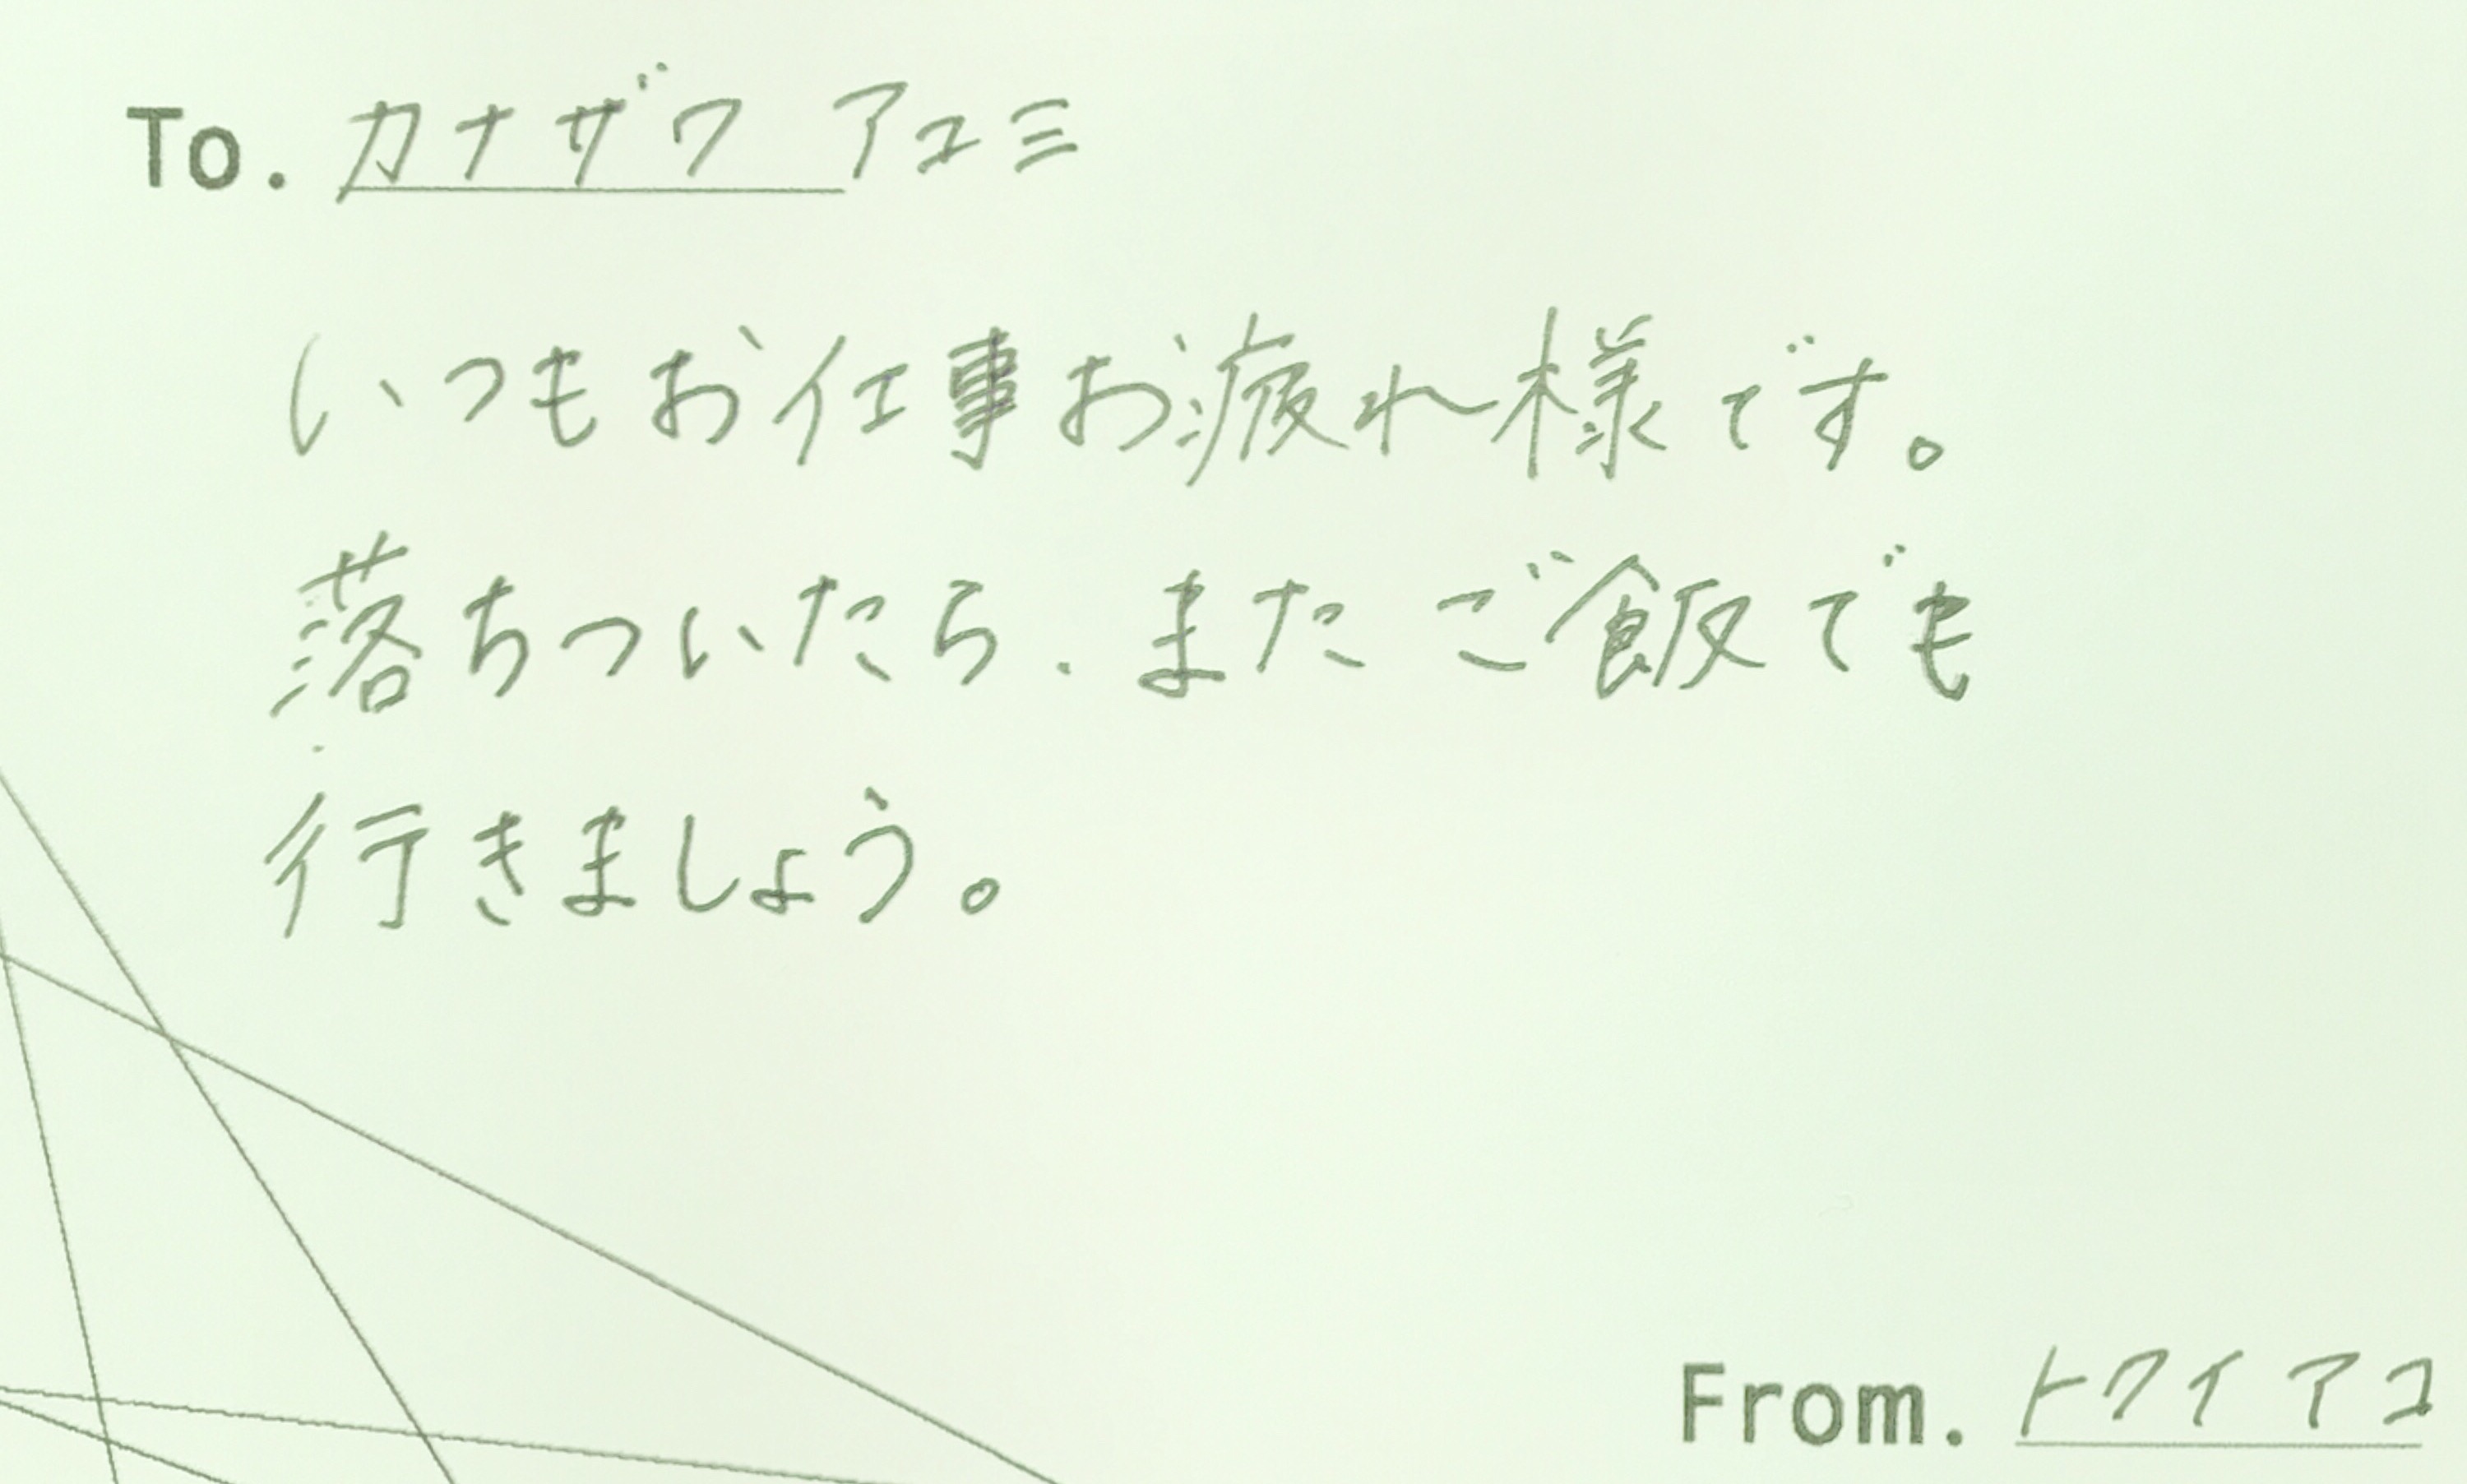 To. カナザワ アユミ
いつもお仕事お疲れ様です。
落ちついたら、またご飯でも
行きましょう。
From. トクイ アコ